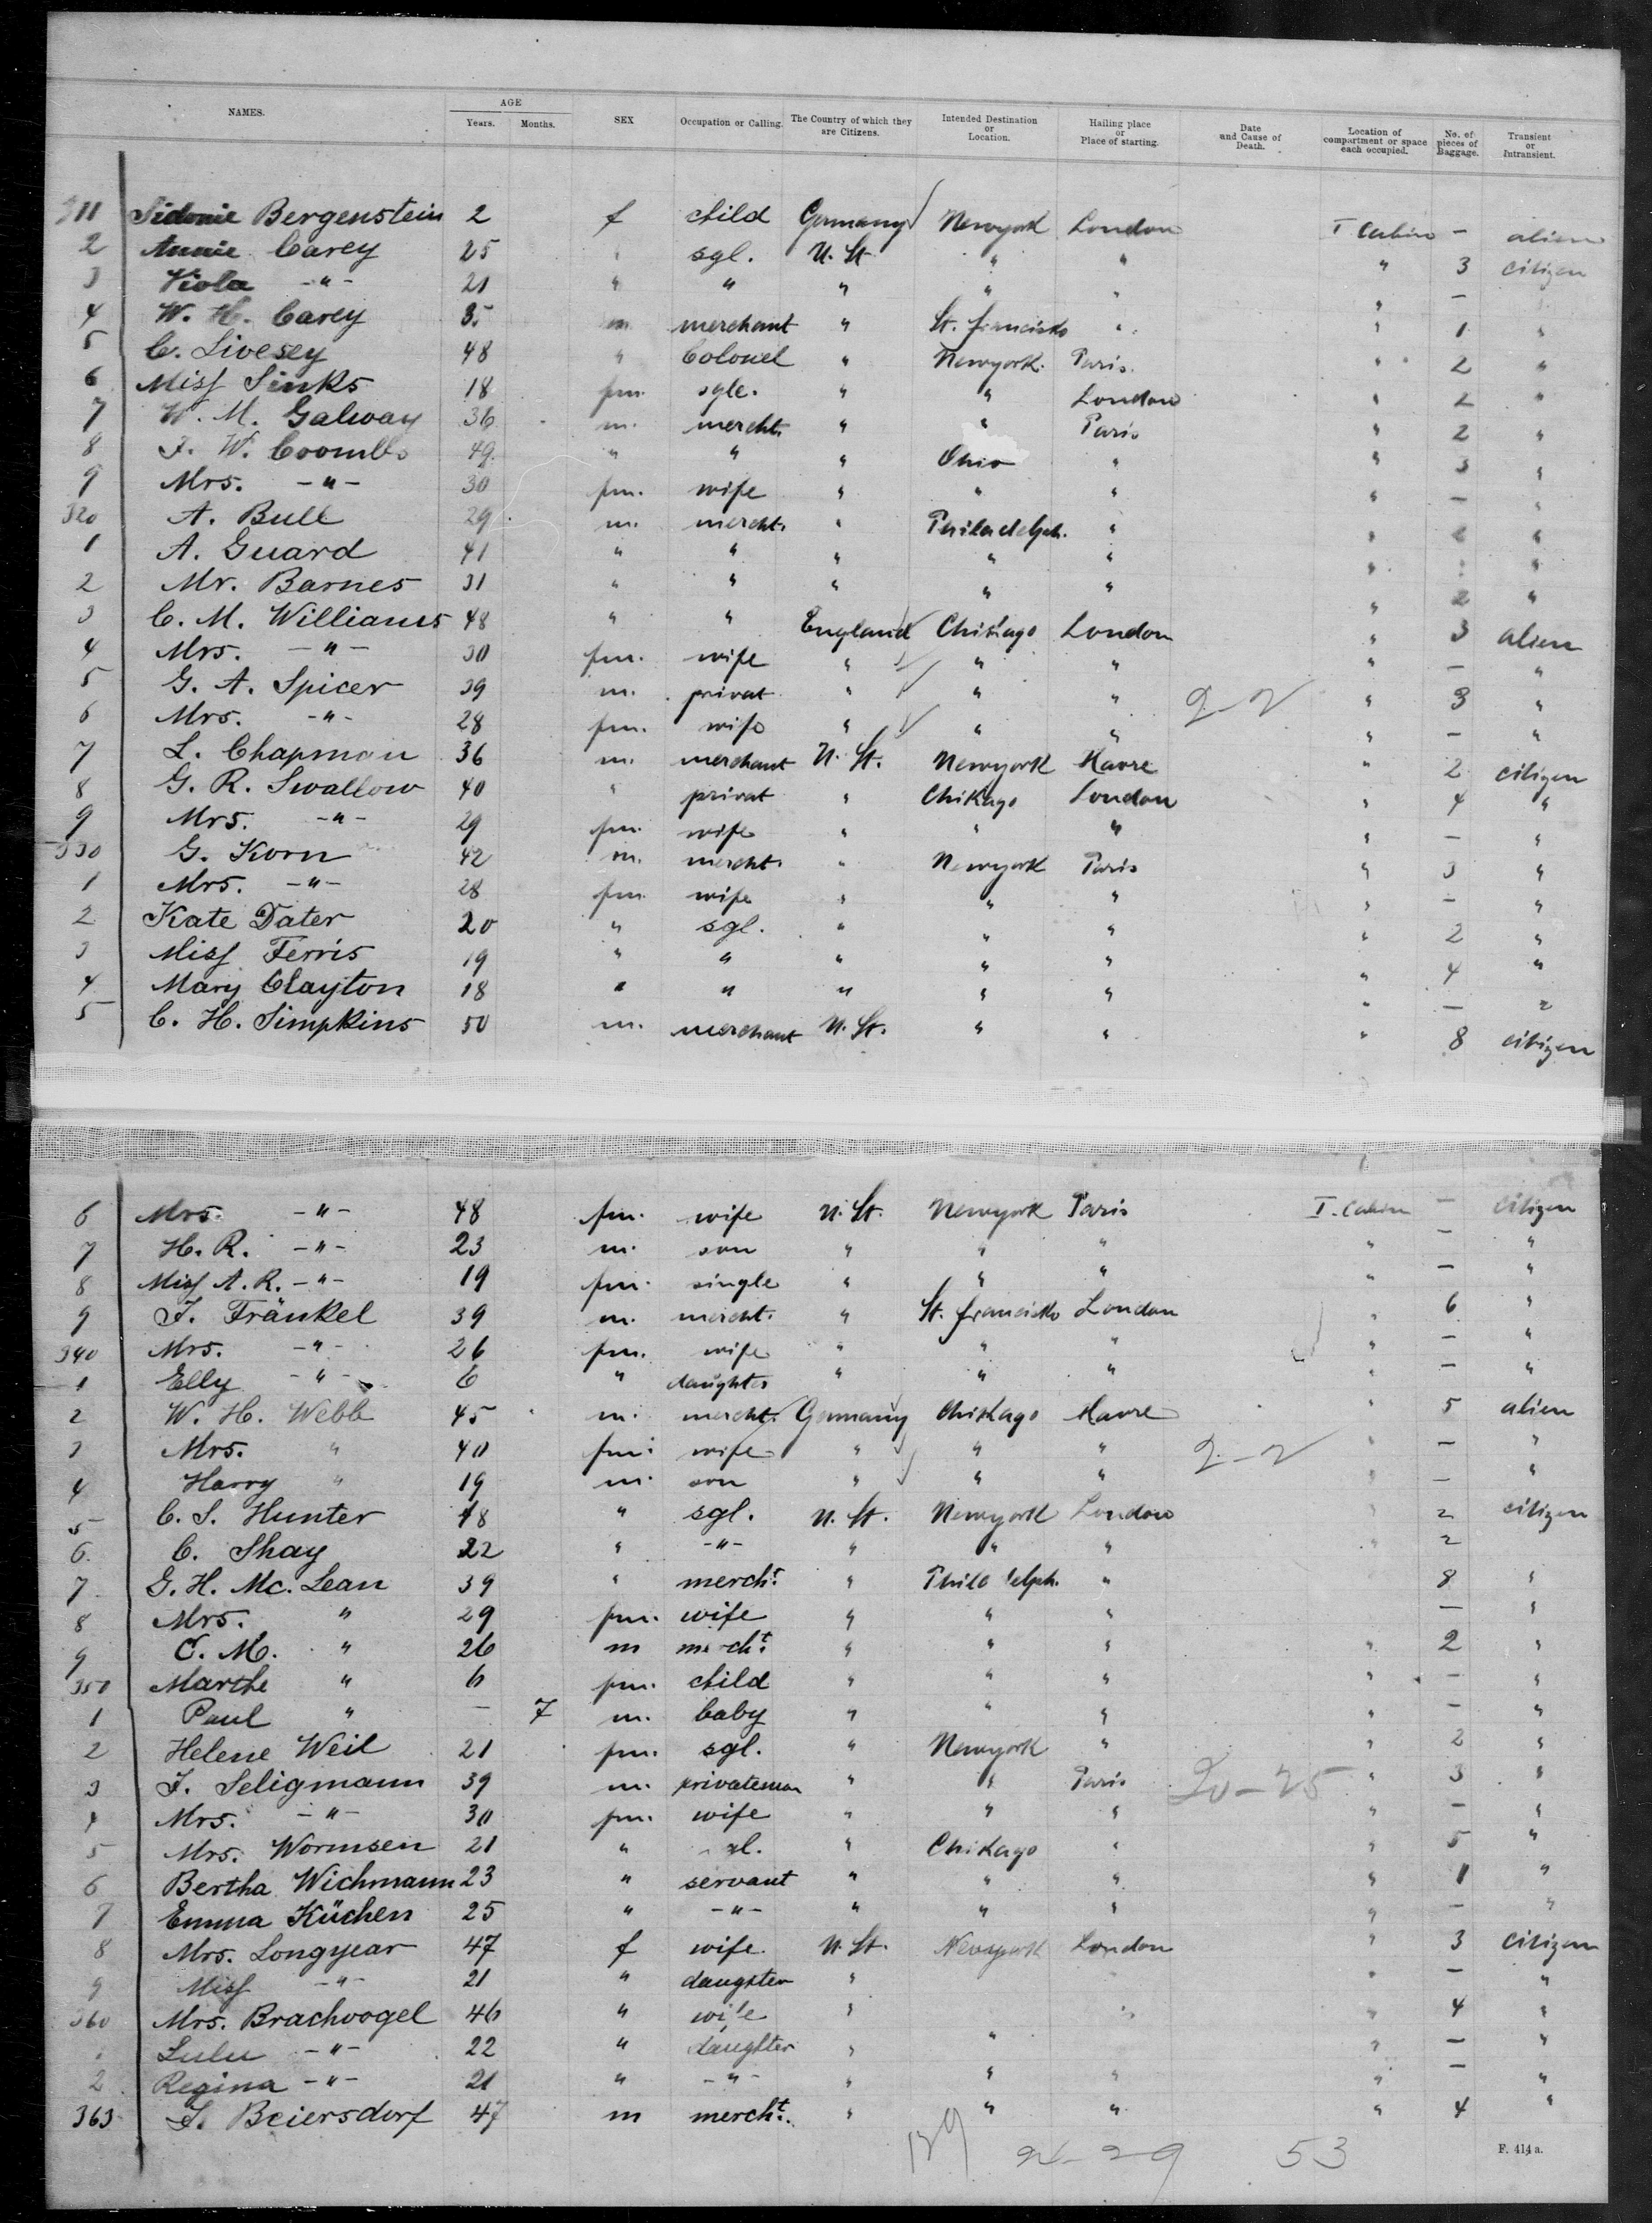 NAMES. AGE Years. Months. SEX Occupation or Calling. The Country of which they are Citizens. Intended Destination or Location. Hailing place or Place of starting. Date and Cause of Death. Location of compartment or space each occupied. No. of pieces of Baggage. Transient or Intransient.
311 Sidonie Bergenstein 2 f child Germany Newyork London I Cabin - alien
2 Annie Carey 25 sgl. U. St. " " " 3 citizen
3 Viola -"- 21 " " " " " " -
4 W. H. Carey 35 m merchant " St. francisko " " 1 "
5 C. Livesey 48 " Colonel " Newyork Paris " 2 "
6 Miss Sinks 18 fm. sgle. " " London " 2 "
7 W. M. Galway 36 m. mercht. " " Paris " 2 "
8 F. W. Coombs 49 " " " Ohio " " 3 "
9 Mrs. -"- 30 fm. wife " " " " - "
320 A. Bull 29 m. mercht. " Philadelph. " " "
1 A. Guard 41 " " " " " " "
2 Mr. Barnes 31 " " " " " " 2 "
3 C. M. Williams 48 " " England Chikago London " 3 alien
4 Mrs. -"- 30 fm. wife " " " " - "
5 G. A. Spicer 39 m. privat " " " 2-2 " 3 "
6 Mrs. -"- 28 fm. wife " " " " - "
7 L. Chapman 36 m. merchant U. St. Newyork Havre " 2 citizen
8 G. R. Swallow 40 " privat " Chikago London " 4 "
9 Mrs. -"- 29 fm. wife " " " " - "
330 G. Korn 42 m. mercht. " Newyork Paris " 3 "
1 Mrs. -"- 28 fm. wife " " " " - "
2 Kate Dater 20 " sgl. " " " " 2 "
3 Miss Ferris 19 " " " " " " 4 "
4 Mary Clayton 18 " " " " " " - "
5 C. H. Simpkins 50 m. merchant U. St. " " " 8 citizen
6 Mrs. -"- 48 fm. wife U. St. Newyork Paris I. Cabin - citizen
7 H. R. -"- 23 m. son " " " " - "
8 Miss A. R. -"- 19 fm. single " " " " - "
9 F. Fränkel 39 m. mercht. " St. francisko London " 6 "
340 Mrs. -"- 26 fm. wife " " " " - "
1 Elly -"- 6 " daughter " " " - "
2 W. H. Webb 45 m. mercht. Germany Chikago Havre " 5 alien
3 Mrs. " 40 fm. wife " " " 2-2 " - "
4 Harry " 19 m. son " " " " - "
5 C. S. Hunter 18 " sgl. U. St. Newyork London " 2 citizen
6. C. Shay 22 " -"- " " " " 2
7 G. H. Mc. Lean 39 " mercht. " Philadelph. " 8 "
8 Mrs. " 29 fm. wife " " " - "
9 O. M. " 26 m mercht. " " " " 2 "
350 Marthe " 6 fm. child " " " " - "
1 Paul " - 7 m. baby " " " " - "
2 Helene Weil 21 fm. sgl. " Newyork " " 2 "
3 F. Seligmann 39 m. privateman " " Paris 20-25 " 3 "
4 Mrs. -"- 30 fm. wife " " " " - "
5 Mrs. Wormsen 21 " sgl. " Chikago " " 5 "
6 Bertha Wichmann 23 " servant " " " " 1 "
7 Emma Küchen 25 " -"- " " " " - "
8 Mrs. Longyear 47 f wife U. St. Newyork London " 3 citizen
9 Miss -"- 21 " daugster " " - "
360 Mrs. Brachvogel 46 " wife " " " 4 "
Lulu -"- 22 " daughter " " " - "
2 Regina -"- 21 " -"- " " " " - "
363 F. Beiersdorf 47 m mercht. " " " " 4 "
129 24-29 53 F. 414 a.